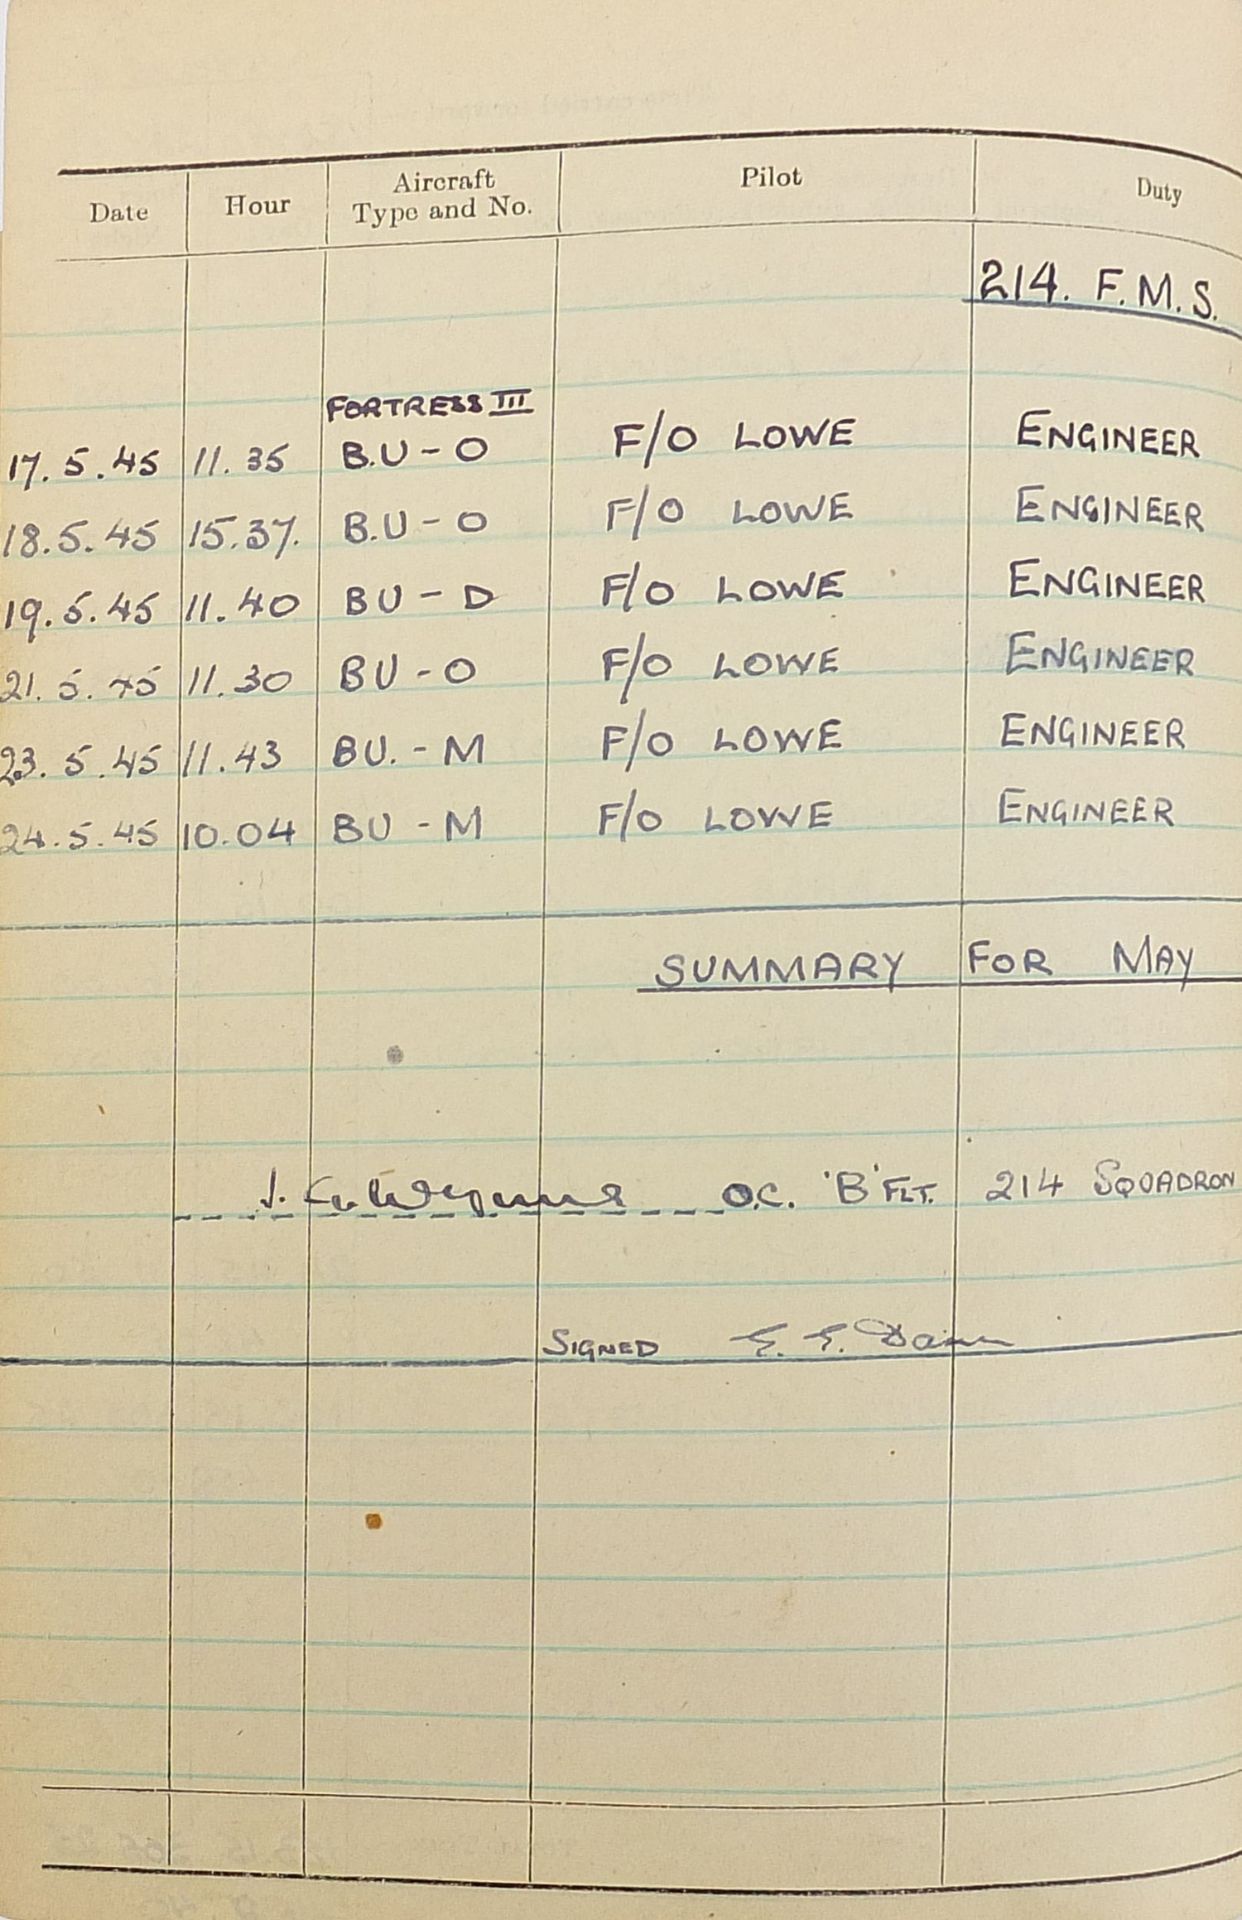 Date Hour Aircraft Type and No. Pilot Duty
214. F.M.S.
FORTRESS III
17.5.45 11.35 B.U-O F/O LOWE ENGINEER
18.5.45 15.37. B.U-O F/O LOWE ENGINEER
19.5.45 11.40 BU-D F/O LOWE ENGINEER
21.5.45 11.30 BU-O F/O LOWE ENGINEER
23.5.45 11.43 BU.-M F/O LOWE ENGINEER
24.5.45 10.04 BU-M F/O LOWE ENGINEER
SUMMARY FOR MAY
J. O.C. 'B' FLT. 214 SQUADRON
SIGNED